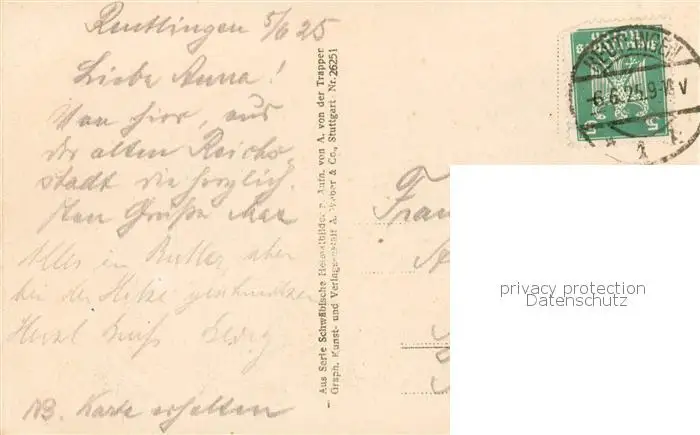 Reutlingen 5/6 25
Liebe Anna!
Von hier, aus
der alten Reichs-
stadt die herzlich-
sten Grüße Max
Alles in Butter, aber
bei der Hitze geschmolzen
Herzl. Gruß Georg
NB. Karte erhalten
Aus Serie Schwäbische Heimatbilder n. Aufn. von A. von der Trappen
Graph. Kunst- und Verlagsanstalt A. Weber & Co., Stuttgart Nr. 26251
REUTLINGEN
-6.6.25.9-10 V
1
5 5
Frau
privacy protection
Datenschutz